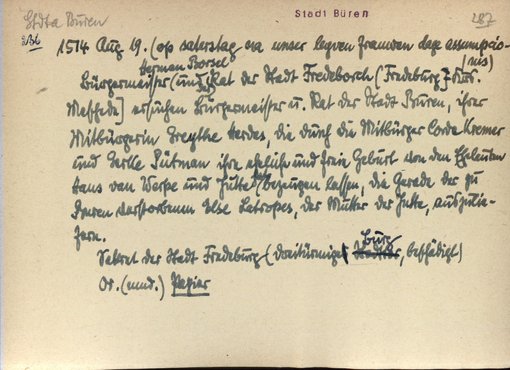 Stdta Büren
Stadt Büren
287
1514 Aug. 19. (op saterstag na unser leyven frauwen dage assumpcio-
(nis)
Herman Borsel
Bürgermeister (und) Rat der Stadt Fredeborch [Fredeburg] Krs.
Meschede] ersuchen Bürgermeister u. Rat der Stadt Büren, ihrer
Mitbürgerin Greythe Herdes, die durch die Mitbürger Cord Kremer
und Gerke Pütman ihre eheliche und freie Geburt von den Eheleuten
Hans van Werpe und Jutte bezeugen lassen, die Gerade der zu
Büren verstorbenen Else Latropes, der Mutter der Jutte, auszulie-
fern.
Burg
Sekret der Stadt Fredeburg (dreitürmige, beschädigt)
Or. (mnd.) Papier